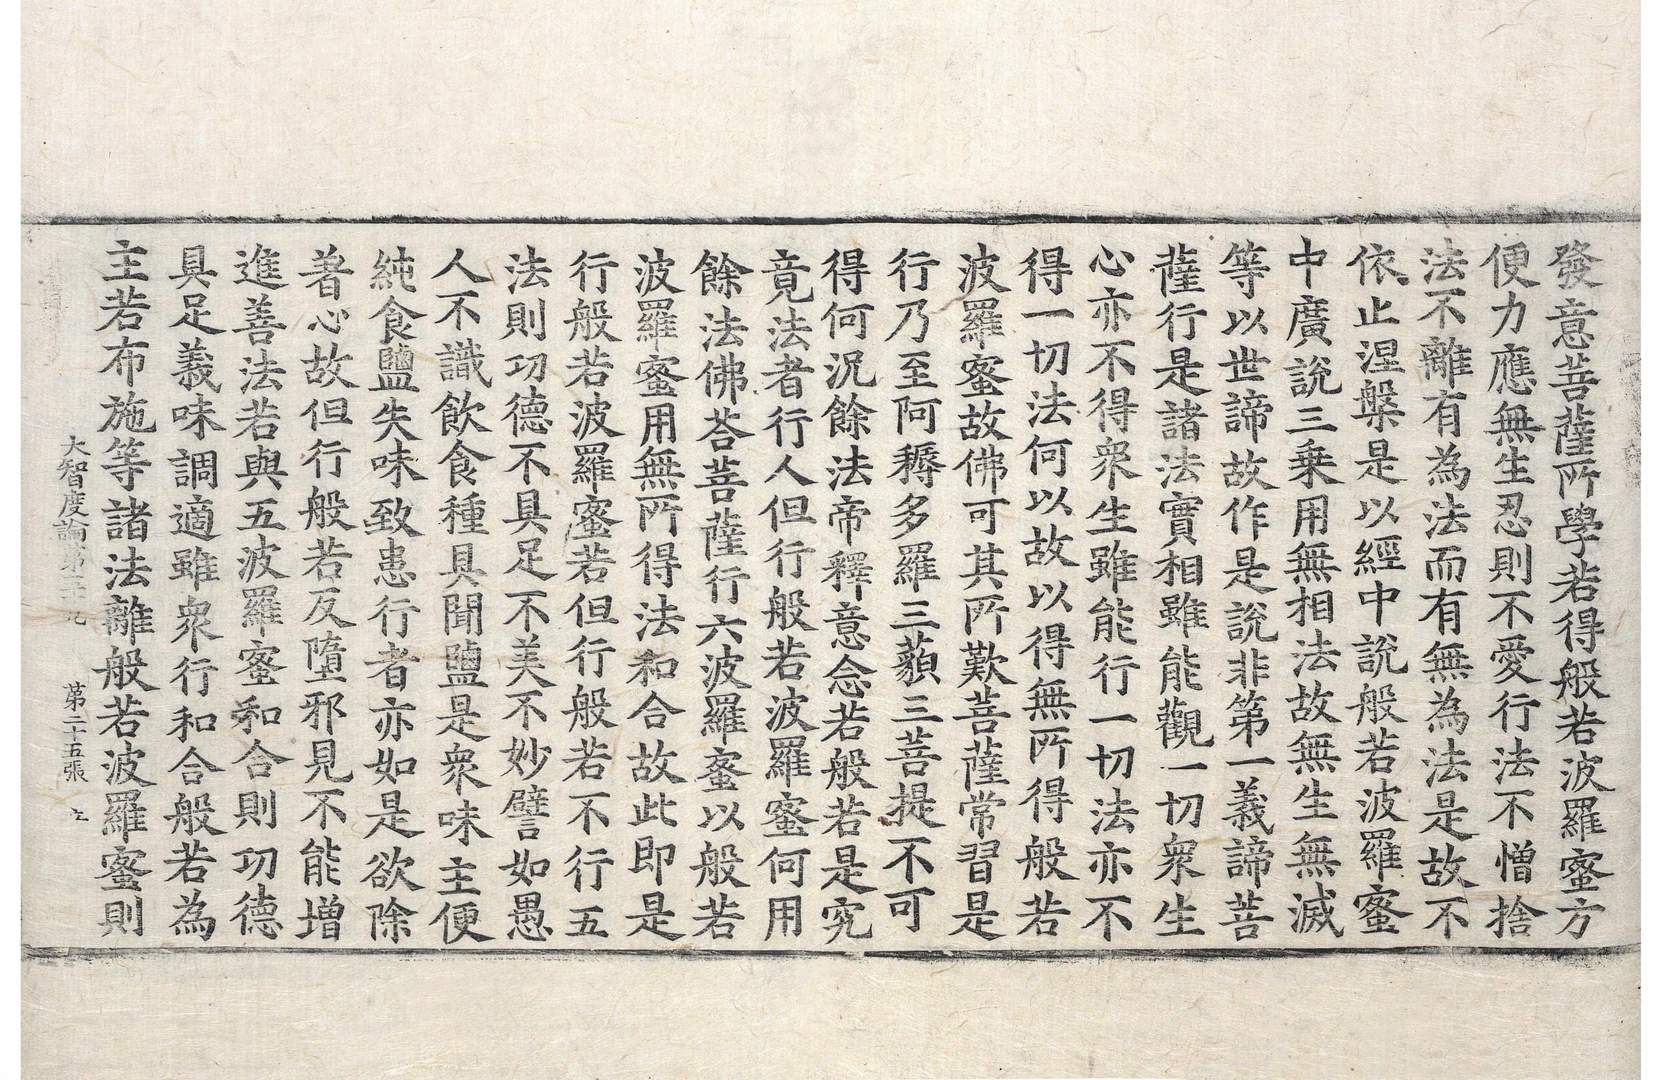 發意菩薩所學若得般若波羅蜜方
便力應無生忍則不愛行法不憎捨
法不離有為法而有無為法是故不
依止涅槃是以經中說般若波羅蜜
中廣說三乗用無相法故無生無滅
等以世諦故作是說非第一義諦菩
薩行是諸法實相雖能觀一切衆生
心亦不得衆生雖能行一切法亦不
得一切法何以故以得無所得般若
波羅蜜故佛可其所歎菩薩常習是
行乃至阿耨多羅三藐三菩提不可
得何況餘法帝釋意念若般若是究
竟法者行人但行般若波羅蜜何用
餘法佛荅菩薩行六波羅蜜以般若
波羅蜜用無所得法和合故此即是
行般若波羅蜜若但行般若不行五
法則功德不具足不美不妙譬如愚
人不識飲食種具聞鹽是衆味主便
純食鹽失味致患行者亦如是欲除
著心故但行般若反墮邪見不能增
進善法若與五波羅蜜和合則功德
具足義味調適雖衆行和合般若為
主若布施等諸法離般若波羅蜜則
大智度論第 第二十五張